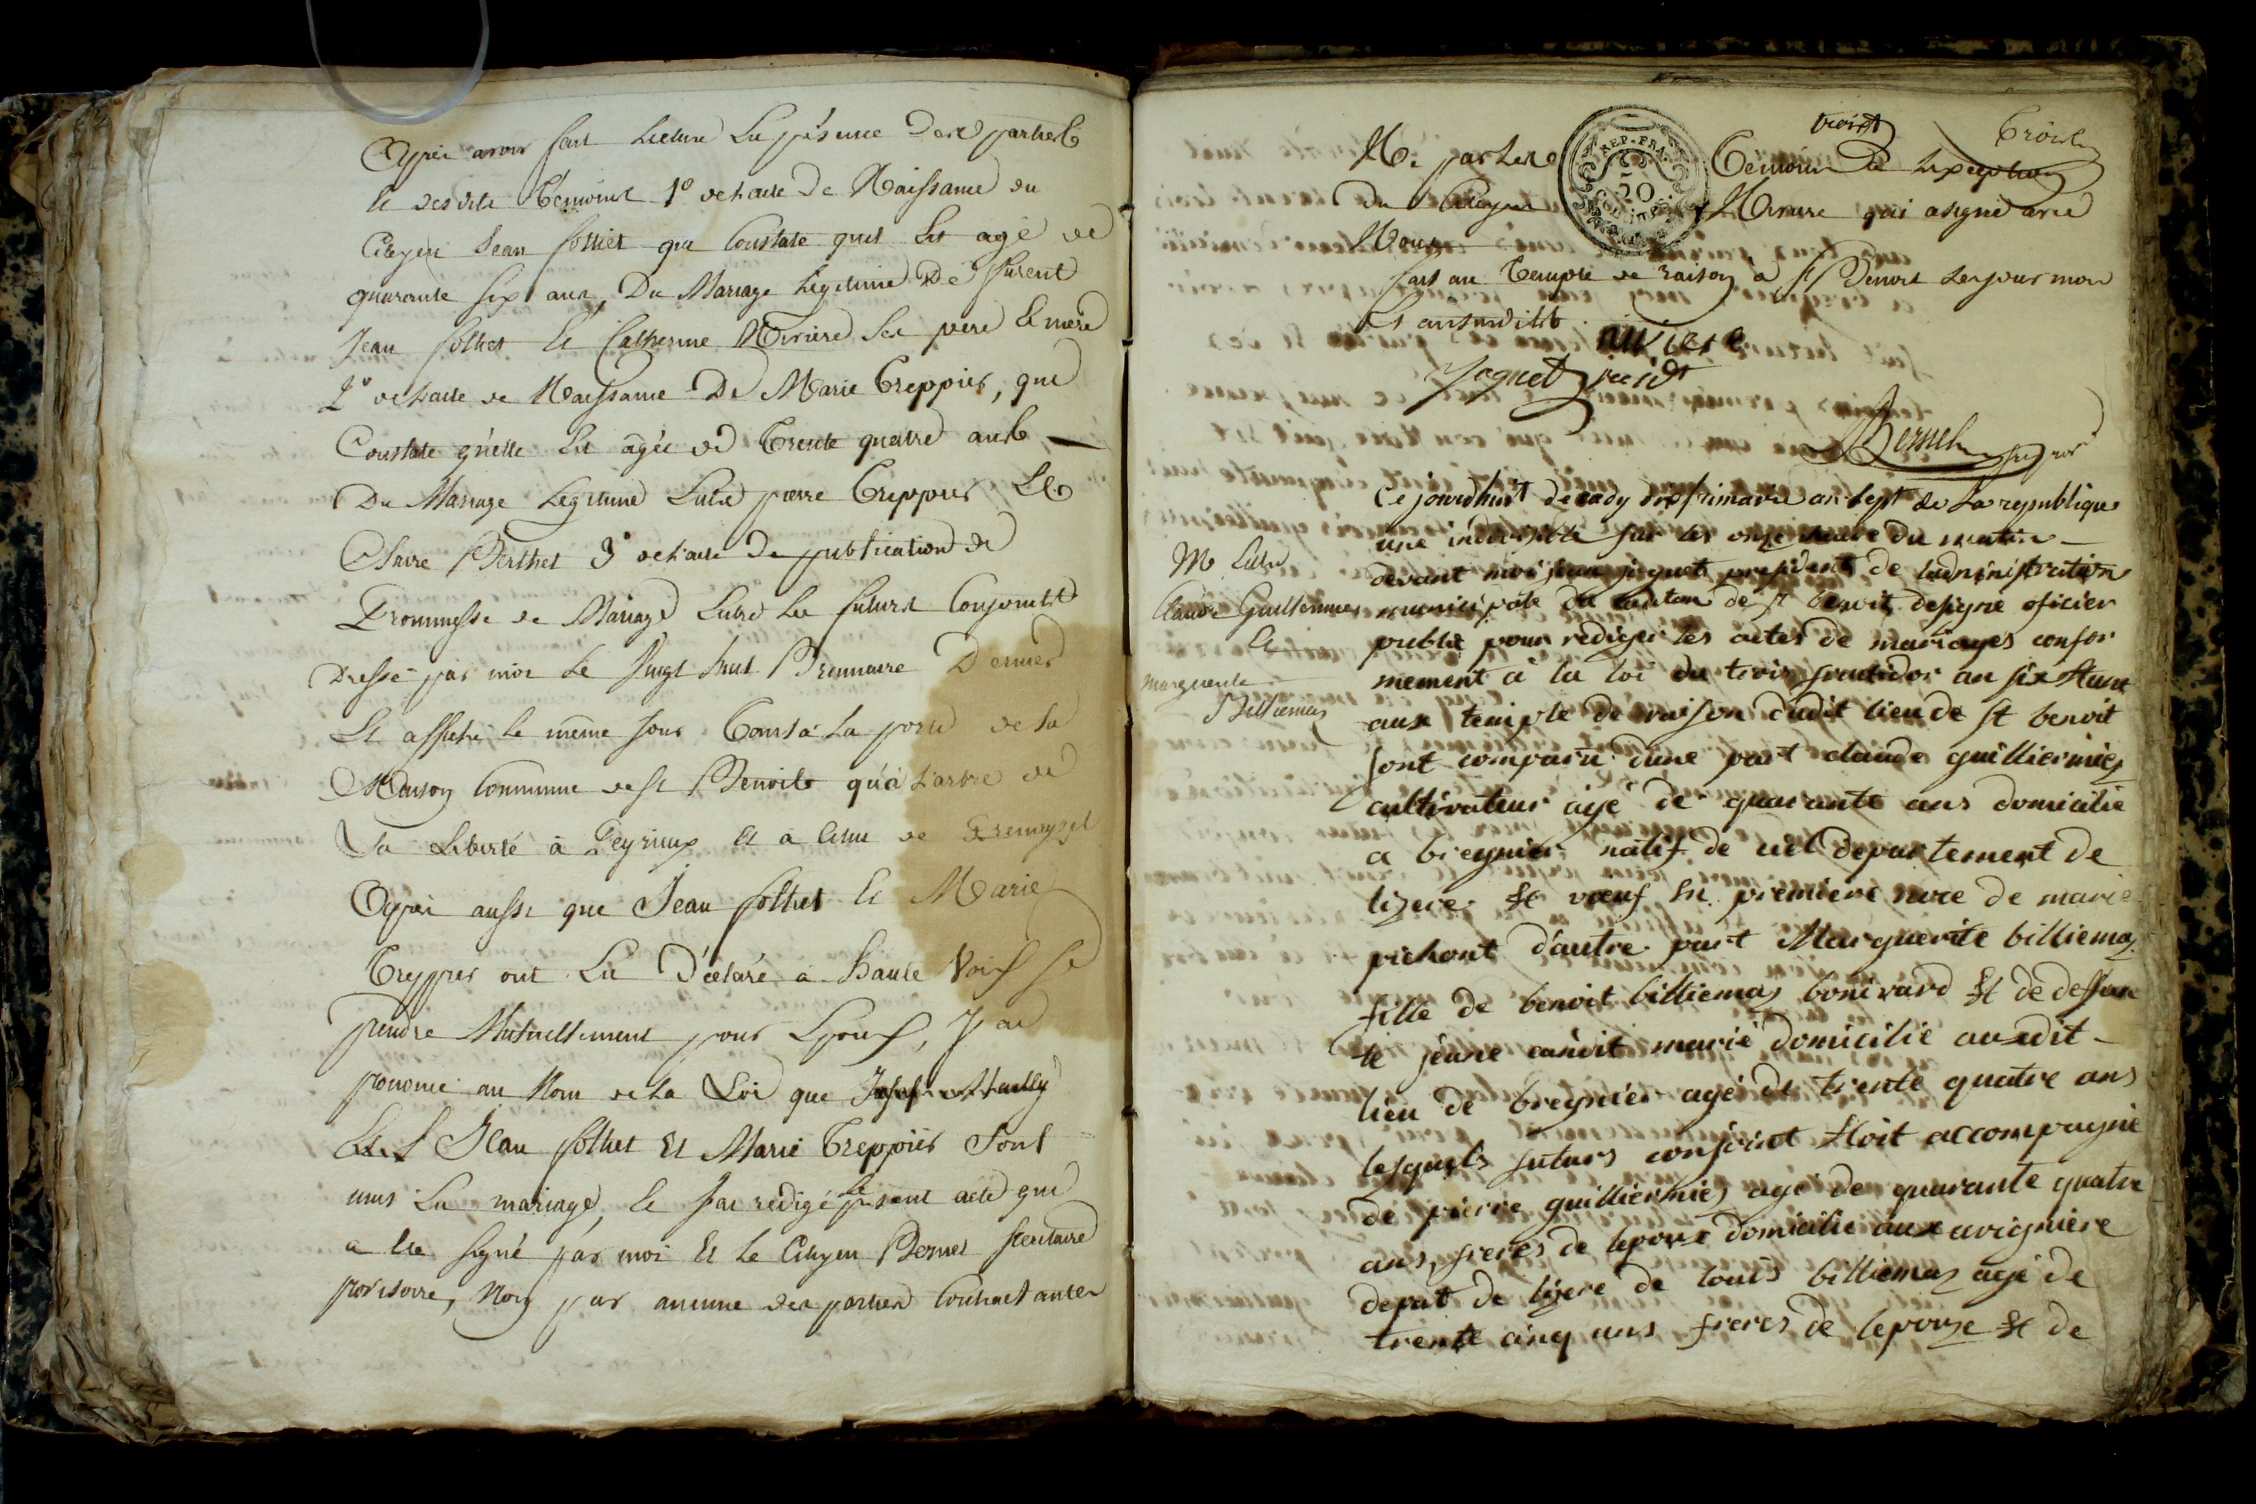 Après avoir fait Lecture En présence Des parties
Et desdits Témoins 1° de L'acte De Naissance du
Citoyen Jean follièt qui Constate quil Est agé de
quarante six ans, Du Mariage Legitime De
Jean follièt Et Catherine Riviere Ses pere Et mere
2° de L'acte de Naissance De Marie Treppier, qui
Constate qu'elle Est agée de Trente quatre ans
Du Mariage Legitime Entre pierre Treppier Et
Claire Berthet 3° de L'acte De publication de
Promesse de Mariage Entre Les futurs Conjoints
Dressé par moi Le Vingt huit Brumaire Dernier
Et affiché le même jour Tant à La porte de La
Maison Commune de St Benoit qu'à L'arbre de
La Liberté à Peyrieux Et à Celui de Premeyzel
Après aussi que Jean follièt Et Marie
Treppier ont Eu Déclaré à Haute Voix se
prendre Mutuellement pour Epoux, J'ai
prononcé au Nom de La Loi que
Jean follièt Et Marie Treppier Sont
unis En mariage, Et J'ai redigé le présent acte qui
a Eté signé par moi Et Le Citoyen Bernet secretaire
provisoire, Non par aucune des parties Contractantes
Troist
Ni par Les trois Témoins à L'exception
REP. FRA.
50
CENTIMES
du Citoyen Riviere qui a signé avec
Nous
fait au Temple de raison à St Benoit Les jour mois
Et an susdits
riviere
Jaquet presidt
Bernet
Ce jourdhuit decady dix frimaire an Sept de La republique
une indivisible sur les onze heure du matin
devant moi jean jaquet president de ladministration
municipale du canton de st benoit designé oficier
public pour rediger les actes de mariages confor
mement à la loi du treize fructidor an six
aux temple de raison dudit lieu de st benoit
M Entre
Claude Guilliermier
Et
Marguerite
Billiemaz
sont comparu dune part claude guilliermiez
cultivateur agé de quarante ans domicilié
a bregnier natif de ciel departement de
lizere Et veuf En premiere noce de marie
pichont d'autre part Marguerite billiemaz
fille de benoit billiemaz bonivard Et de deffun
te jeane marié domicilié audit
lieu de bregnier agé de trente quatre ans
lesquels futurs conjoint Etoit accompagné
de pierre guilliermiez agé de quarante quatre
ans, freres de lepoux domicilié aux avignière
depat de lizere de louis billiemaz agé de
trente cinq ans freres de lepouze Et de